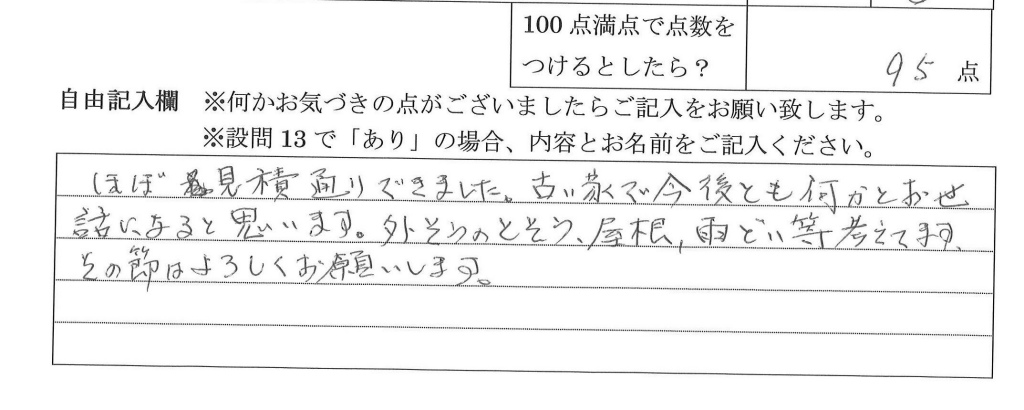 100点満点で点数を
つけるとしたら？
95 点
自由記入欄 ※何かお気づきの点がございましたらご記入をお願い致します。
※設問13で「あり」の場合、内容とお名前をご記入ください。
ほぼ見積通りできました。古い家で今後とも何かとお世
話になると思います。外そうのとそう、屋根,雨どい等考えてます、
その節はよろしくお願いします。